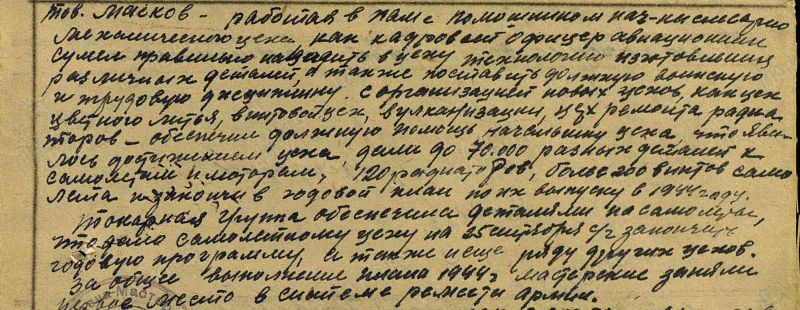 тов. Масков – работая в ПАМ с помощником нач-ка слесарно
механического цеха как кадровый офицер авиационник
сумел правильно наладить в цеху технологию изготовления
различных деталей, а также поставить должную воинскую
и трудовую дисциплину. С организацией новых цехов, как цех
цветного литья, винтовой цех, вулканизации, цех ремонта радиа
торов – обеспечил должную помощь начальнику цеха, что яви
лось достижением цеха, дели до 70.000 разных деталей к
самолетам и моторам, 120 радиаторов, более 200 винтов само
лета и закончил годовой план по их выпуску в 1944 году.
Токарная группа обеспечила деталями на самолеты,
что дало самолетному цеху на 25 сентября с/г закончить
годовую программу, а также и еще ряду других цехов.
За общее выполнение плана 1944 г мастерские заняли
первое место в системе ремонта армии.